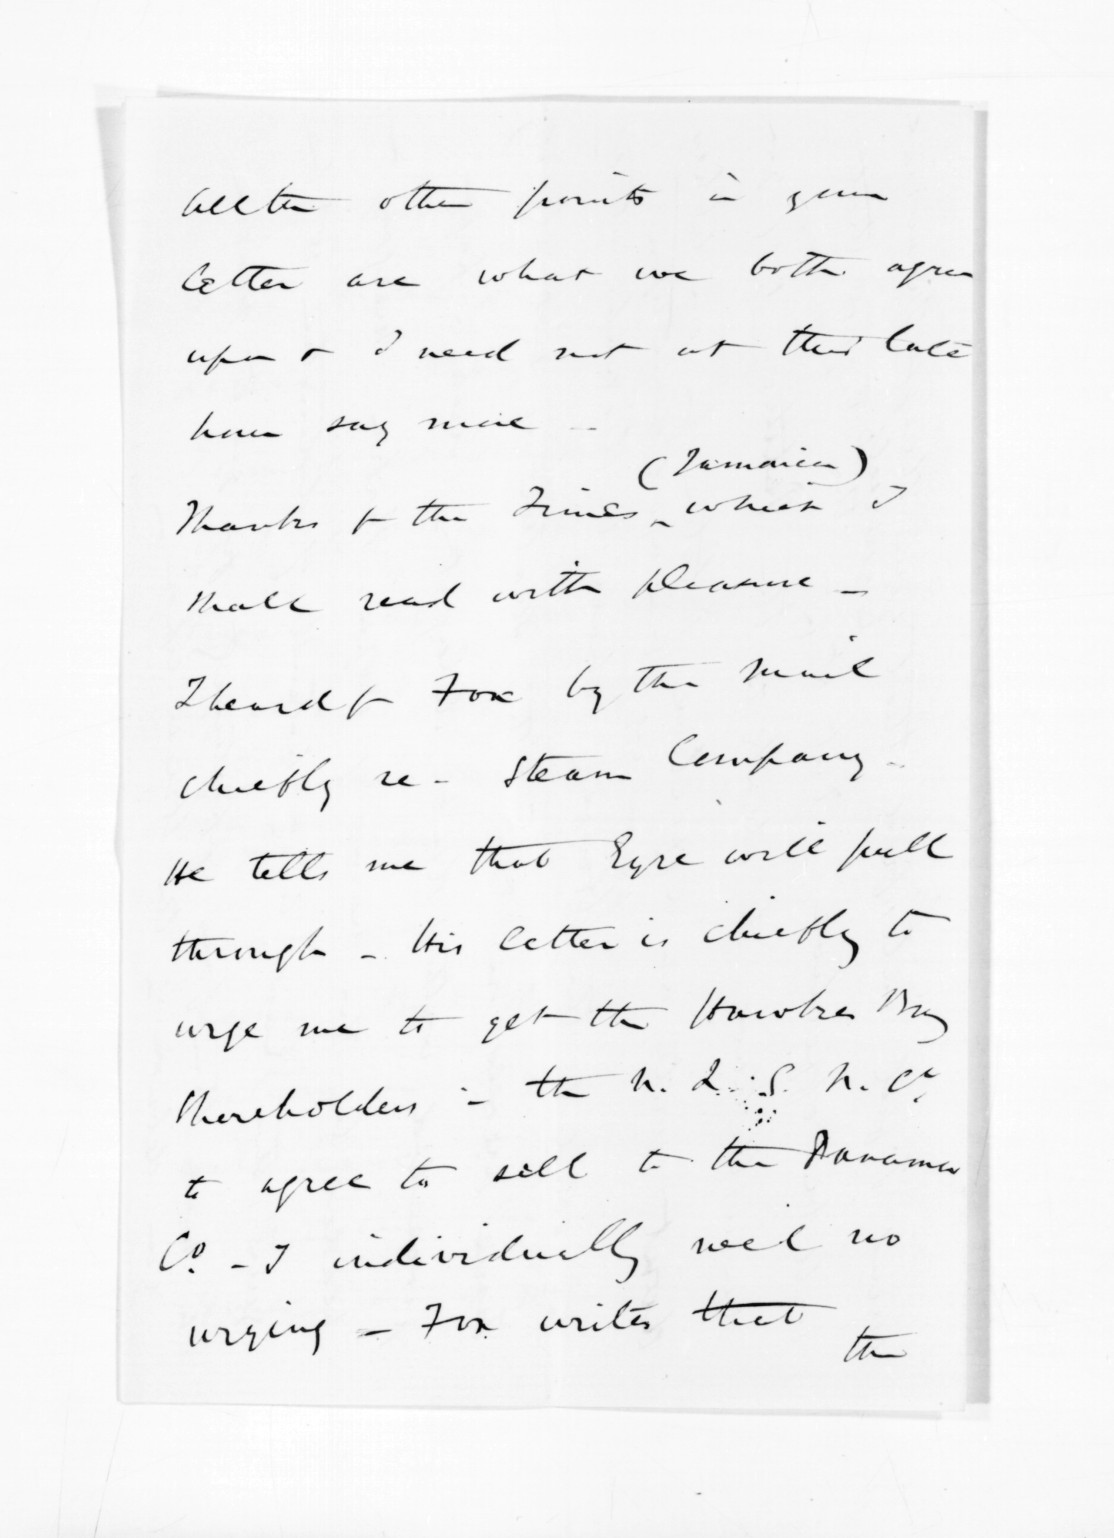 All the other points in your
letter are what we both agree
upon & I need not at this late
hour say more -
(Jamaica)
Thanks for the Times ^ which I
shall read with pleasure -
I heard fr Fox by the mail
chiefly re - Steam Company -
He tells me that Eyre will pull
through - His letter is chiefly to
urge me to get the Hawkes Bay
Shareholders in the N. Z. S. N. Co.
to agree to sell to the Panama
Co. - I individually need no
urging - Fox writes that
the